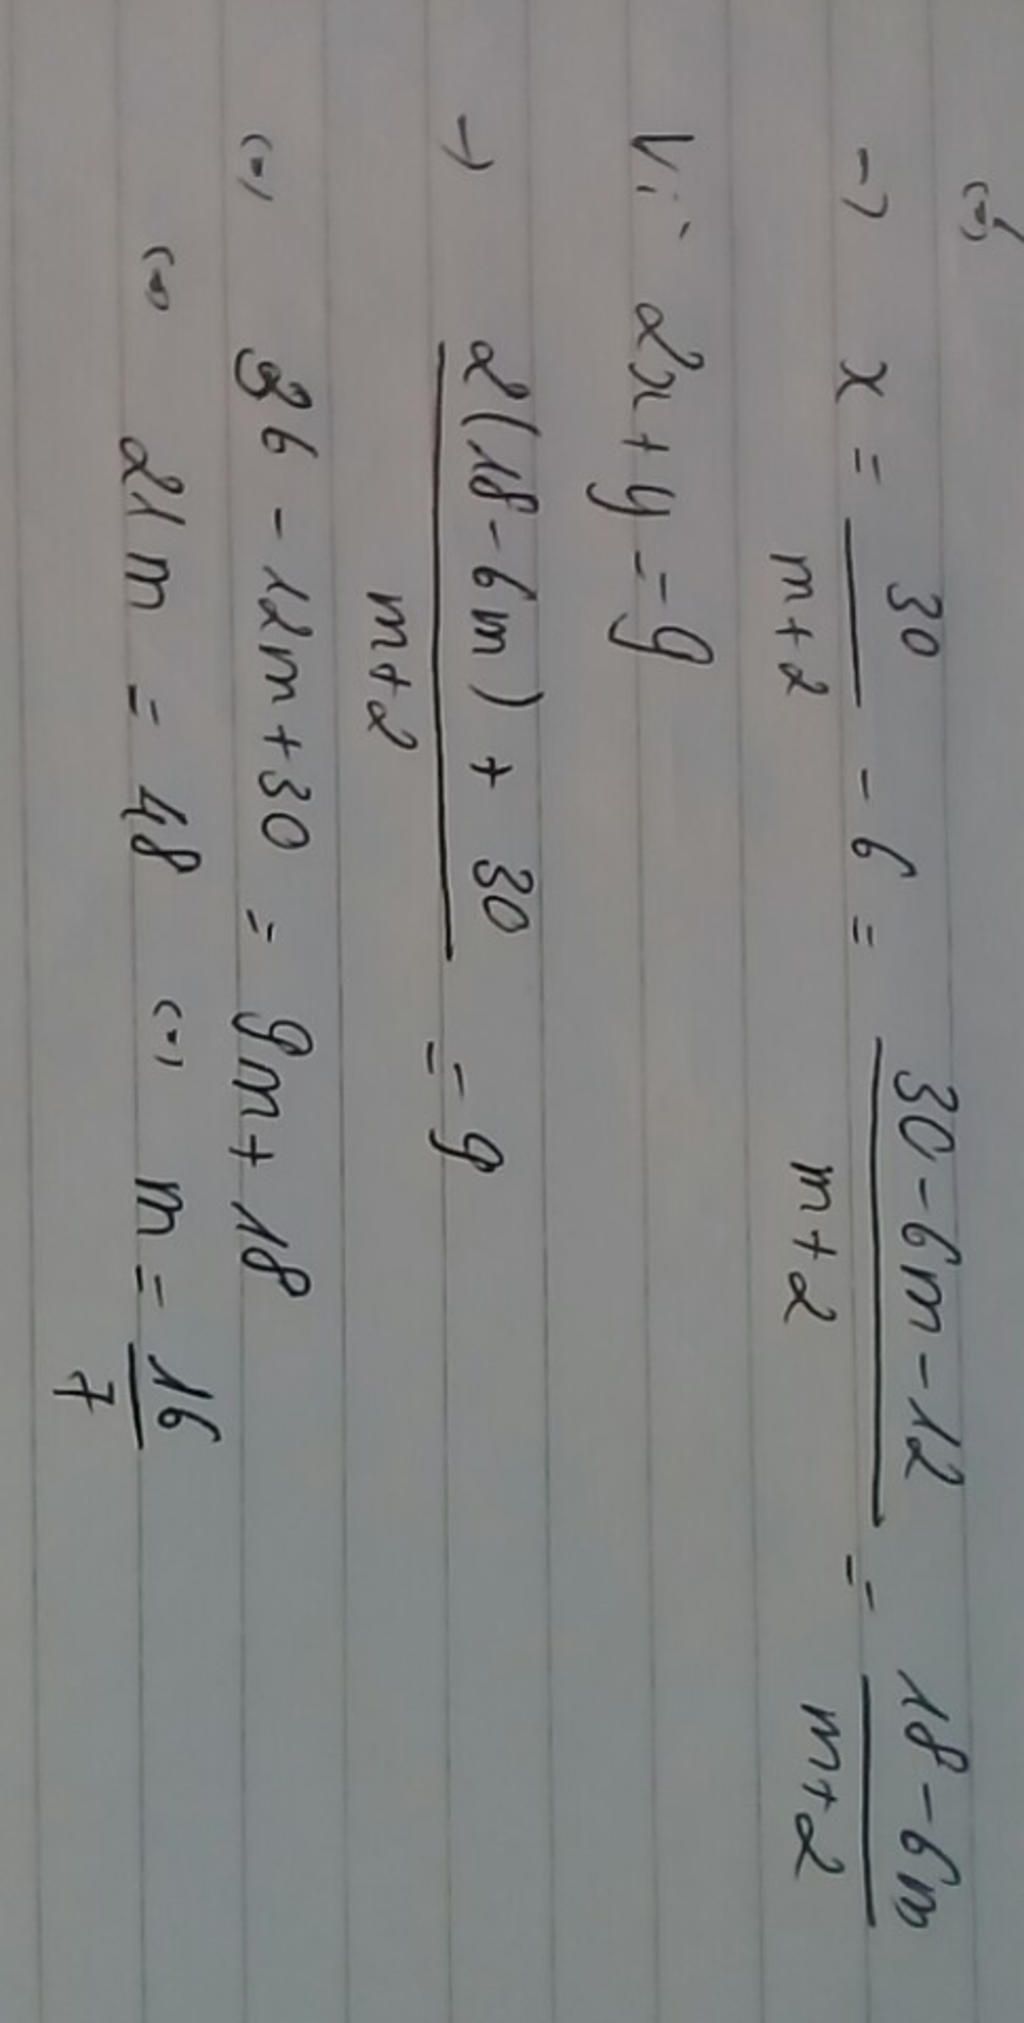 (=)
→ x = 30/(m+2) - 6 = (30-6m-12)/(m+2) = (18-6m)/(m+2)
Vì 2x + y = 9
→ (2(18-6m) + 30)/(m+2) = 9
(=) 36 - 12m + 30 = 9m + 18
(=) 21m = 48 (=) m = 16/7